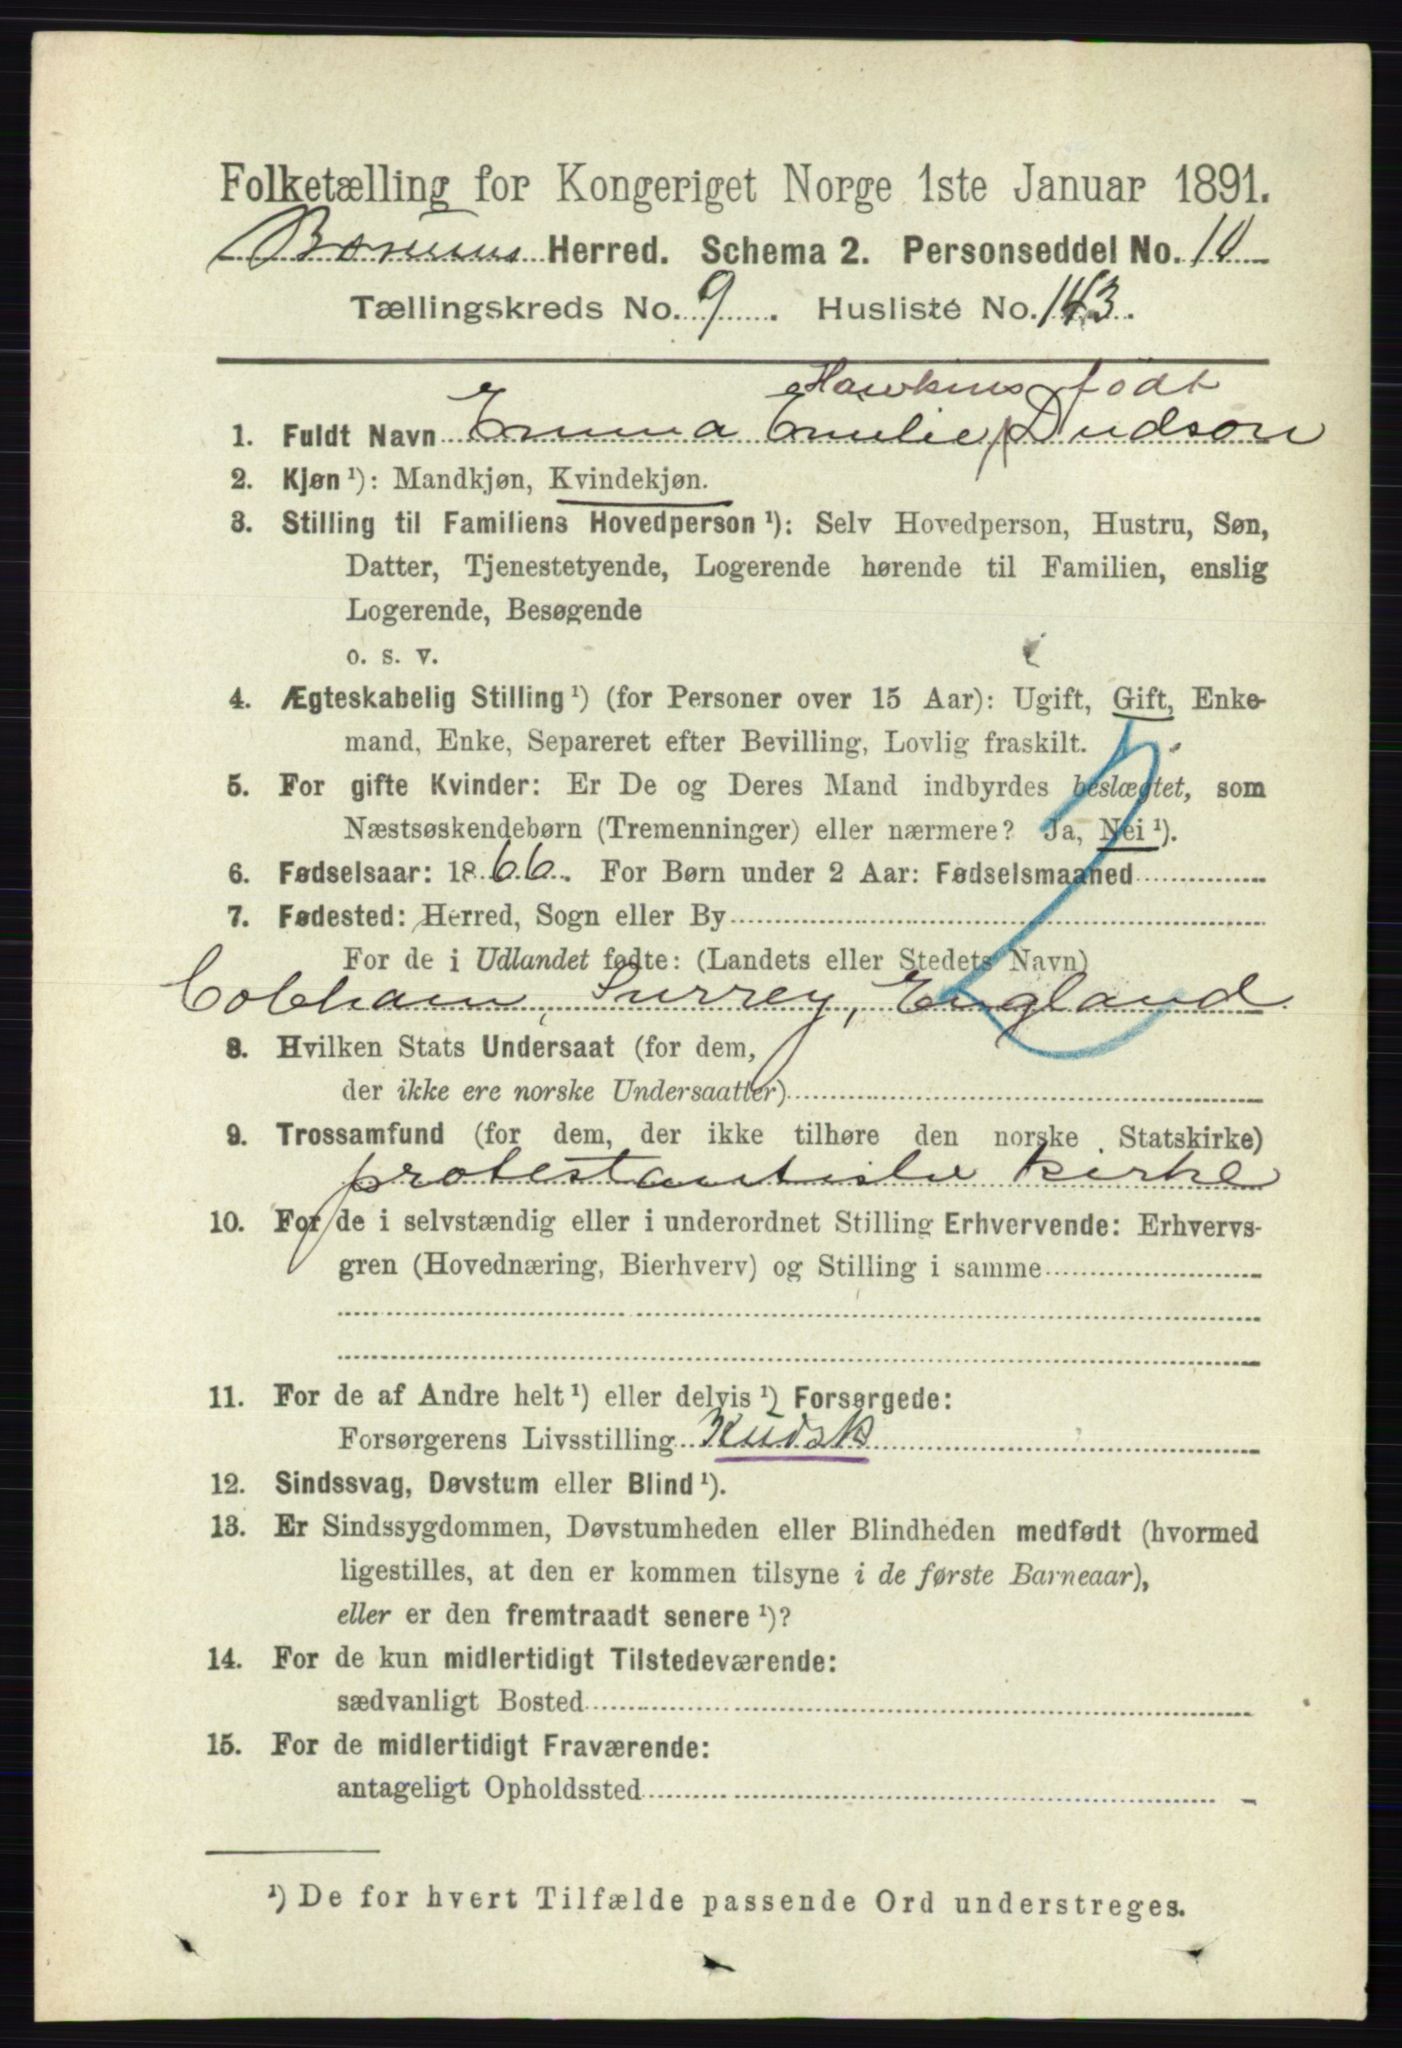 Folketælling for Kongeriget Norge 1ste Januar 1891.
Herred. Schema 2. Personseddel No. 10
Tællingskreds No. 9. Husliste No. 143.
Hawkins født
1. Fuldt Navn Emma Emilie Dudson
2. Kjøn ¹): Mandkjøn, Kvindekjøn.
3. Stilling til Familiens Hovedperson ¹): Selv Hovedperson, Hustru, Søn,
Datter, Tjenestetyende, Logerende hørende til Familien, enslig
Logerende, Besøgende
o. s. v.
4. Ægteskabelig Stilling ¹) (for Personer over 15 Aar): Ugift, Gift, Enke-
mand, Enke, Separeret efter Bevilling, Lovlig fraskilt.
5. For gifte Kvinder: Er De og Deres Mand indbyrdes beslægtet, som
Næstsøskendebørn (Tremenninger) eller nærmere? Ja, Nei ¹).
6. Fødselsaar: 1866. For Børn under 2 Aar: Fødselsmaaned
7. Fødested: Herred, Sogn eller By
For de i Udlandet fødte: (Landets eller Stedets Navn)
Cobham, Surrey, England
8. Hvilken Stats Undersaat (for dem,
der ikke ere norske Undersaatter)
9. Trossamfund (for dem, der ikke tilhøre den norske Statskirke)
protestantiske kirke
10. For de i selvstændig eller i underordnet Stilling Erhvervende: Erhvervs-
gren (Hovednæring, Bierhverv) og Stilling i samme
11. For de af Andre helt ¹) eller delvis ¹) Forsørgede:
Forsørgerens Livsstilling Kudsk
12. Sindssvag, Døvstum eller Blind ¹).
13. Er Sindssygdommen, Døvstumheden eller Blindheden medfødt (hvormed
ligestilles, at den er kommen tilsyne i de første Barneaar),
eller er den fremtraadt senere ¹)?
14. For de kun midlertidigt Tilstedeværende:
sædvanligt Bosted
15. For de midlertidigt Fraværende:
antageligt Opholdssted
¹) De for hvert Tilfælde passende Ord understreges.